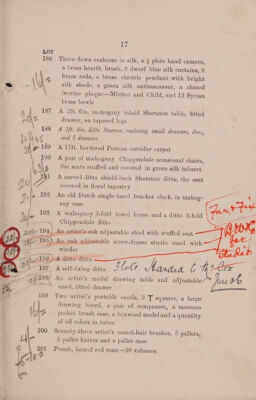 17
LOT
186 Three down cushions in silk, a ½ plate hand camera,
a brass hearth brush, 3 dwarf blue silk curtains, 6
brass rods, a brass electric pendant with bright
silk shade, a green silk antimacassar, a chased
ivorine plaque—Mother and Child, and 12 Syrian
brass bowls
187 A 2ft. 6in. mahogany inlaid Sheraton table, fitted
drawer, on tapered legs
188 A 3ft. 6in. ditto Bureau, enclosing small drawers, &c.,
and 3 drawers
189 A 17ft. bordered Persian corridor carpet
190 A pair of mahogany Chippendale occasional chairs,
the seats stuffed and covered in green silk tabaret
191 A carved ditto shield-back Sheraton ditto, the seat
covered in floral tapestry
192 An old Dutch single-hand bracket clock, in mahog-
any case
193 A mahogany 3-fold towel horse and a ditto 2-fold
Chippendale ditto
194 An artist's oak adjustable stool with stuffed seat
195 An oak adjustable screw-frame studio easel with
winder
196 A ditto ditto
197 A self-fixing ditto
198 An artist's model drawing table and adjustable
easel, fitted drawer
199 Two artist's portable easels, 3 T squares, a large
drawing board, a pair of compasses, a morocco
pocket brush case, a boxwood model and a quantity
of oil colors in tubes
200 Seventy-three artist's camel-hair brushes, 5 pallets,
6 pallet knives and a palette case
201 Punch, bound red roan—26 volumes
Fur & Fix
for
Studio